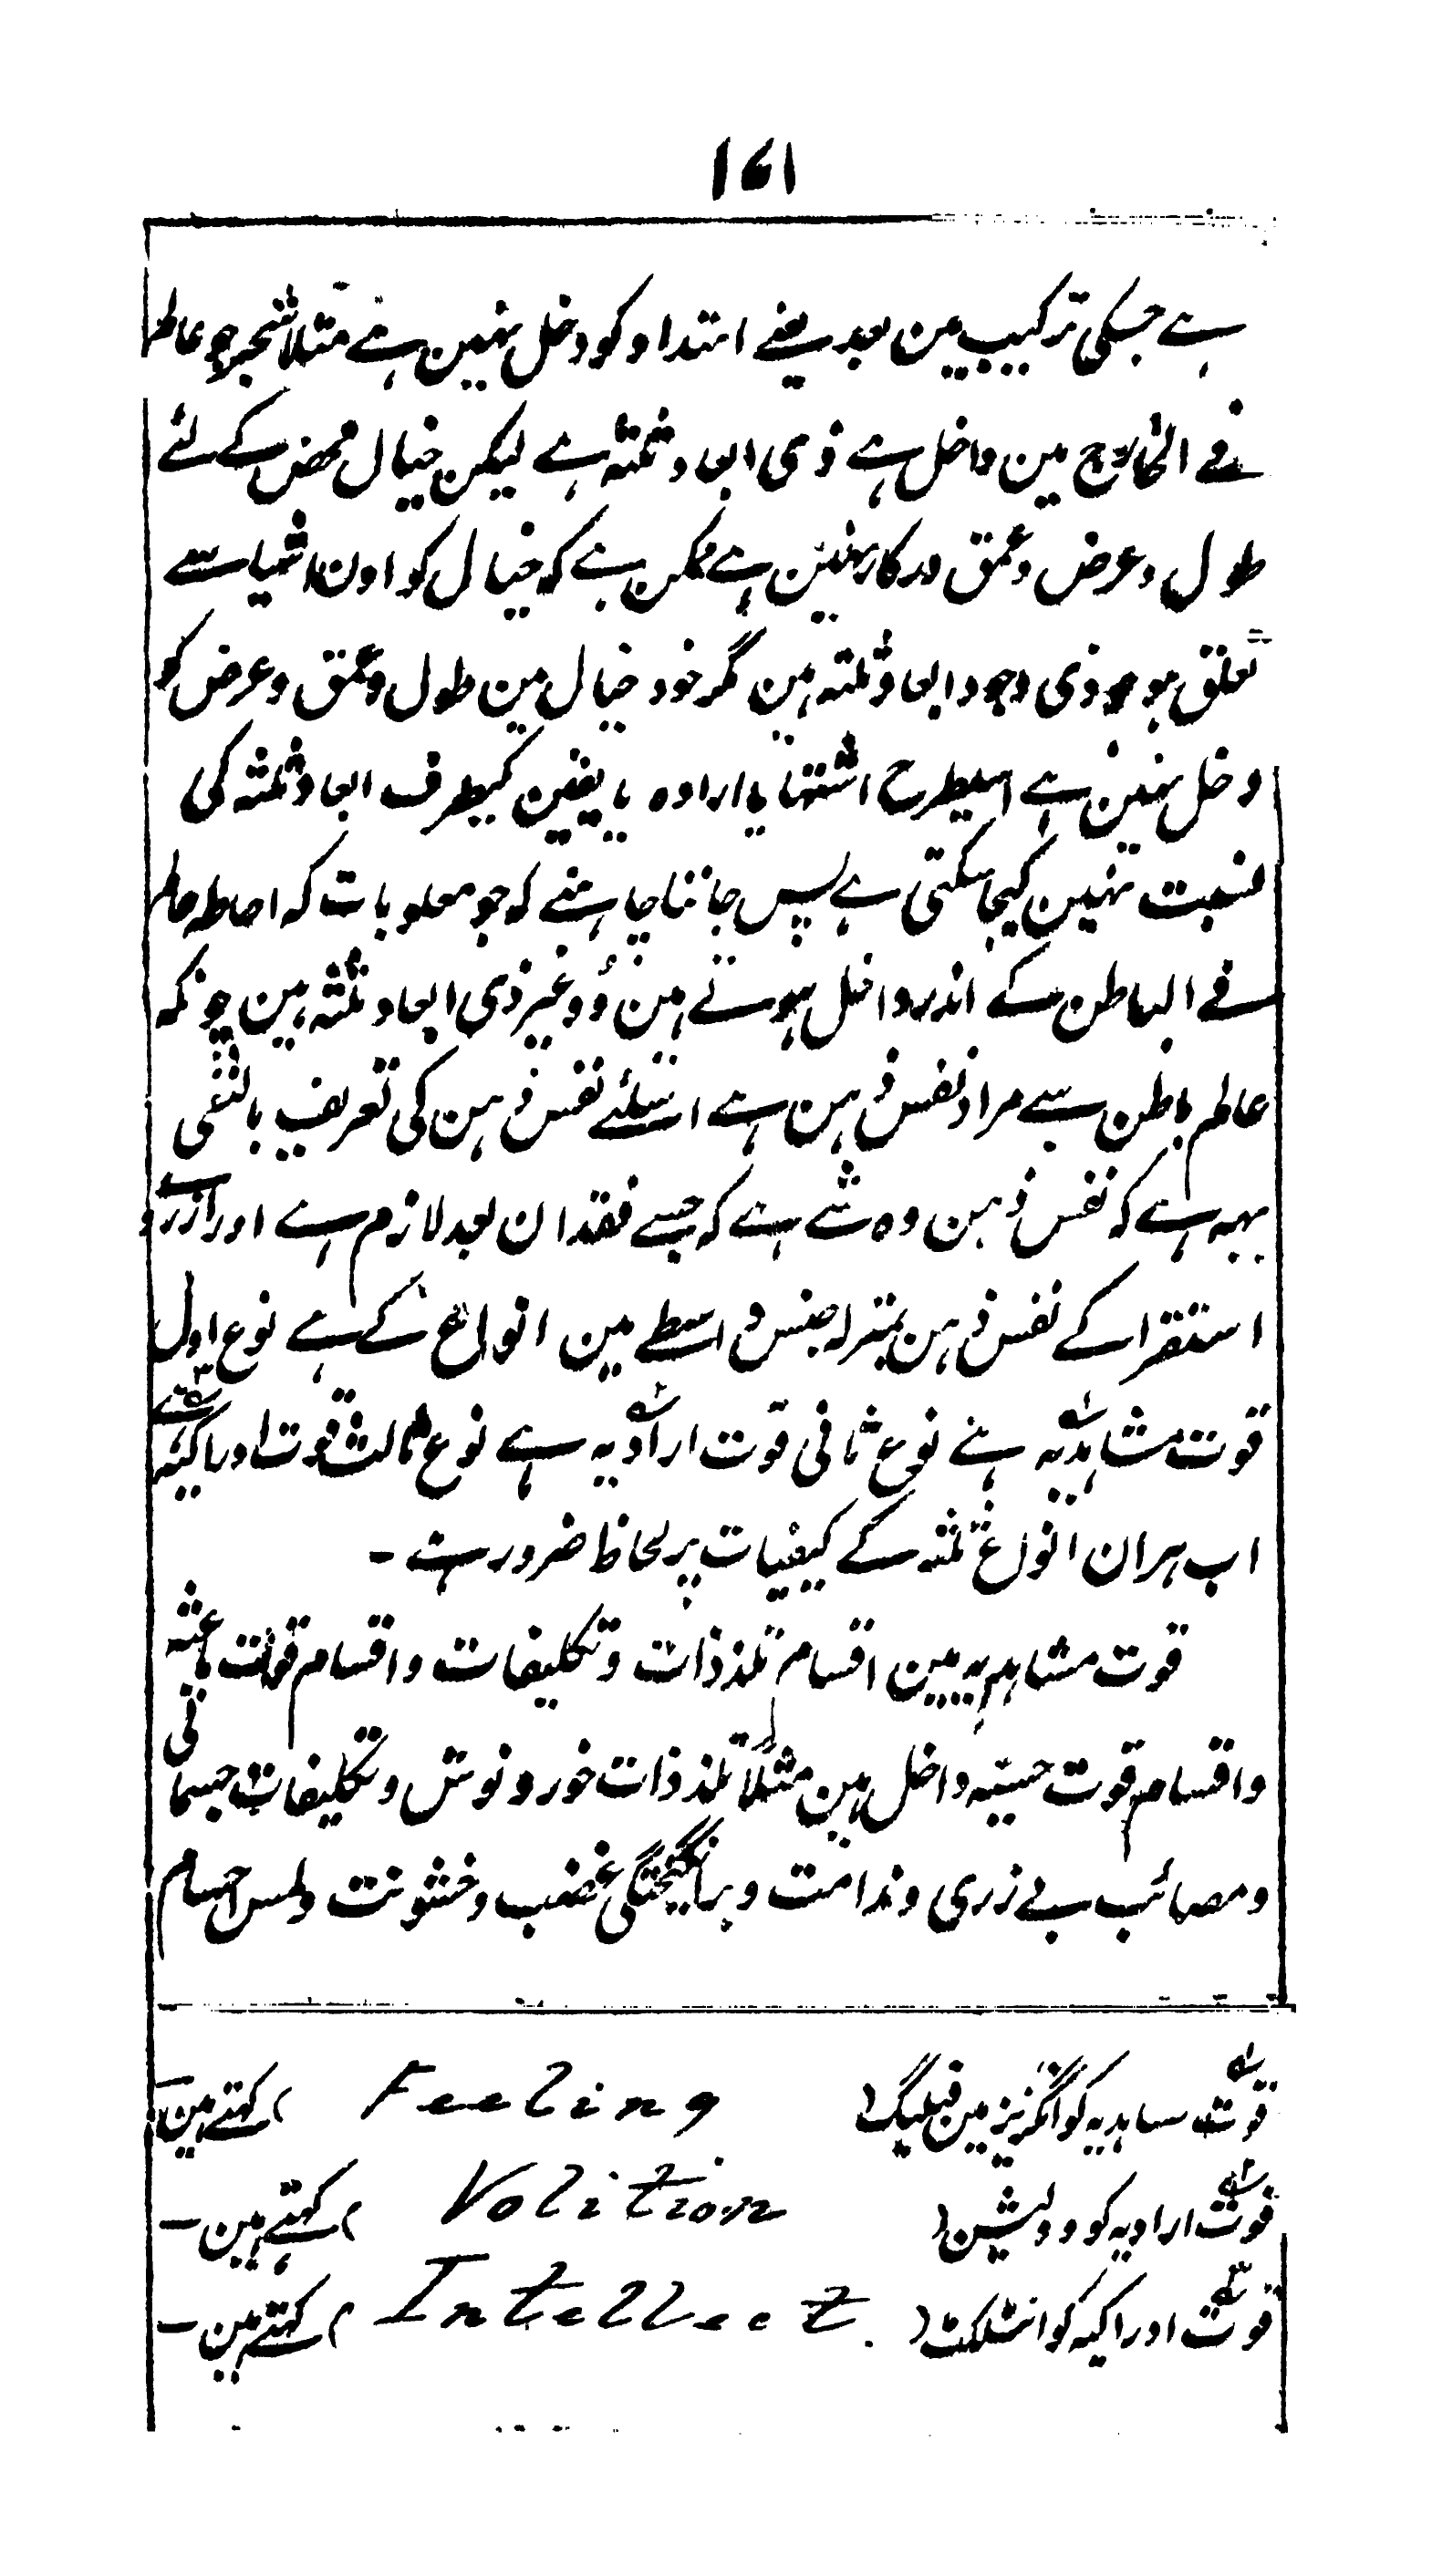 ۱۶۱
ہے جسکی ترکیب مین بعد یعنے امتداد کو دخل نہین ہے مثلا شجر جو عالم
فے الخارج مین داخل ہے ذی ابعاد ثلثہ ہے لیکن خیال محض کے لئے
طول و عرض و عمق درکار نہین ہے ممکن ہے کہ خیال کو اون اشیا سے
تعلق ہو جو ذی وجود ابعاد ثلثہ ہین مگر خود خیال مین طول و عمق و عرض کو
دخل نہین ہے اسیطرح اشتہا یا ارادہ یا یقین کیطرف ابعاد ثلثہ کی
نسبت نہین کیجا سکتی ہے پس جاننا چاہئے کہ جو معلومات کہ احاطہ عالم
فے الباطن کے اندر داخل ہوتے ہین وُہ غیر ذی ابعاد ثلثہ ہین چونکہ
عالم باطن سے مراد نفس ذہن ہے اسلئے نفس ذہن کی تعریف بالنفی
یہہ ہے کہ نفس ذہن وہ شے ہے کہ جسے فقدان بعد لازم ہے اور ازروے
استقرا کے نفس ذہن بمنزلہ جنس واسطے مین انواع کے ہے نوع اول
قوت مشاہدیہ ہے نوع ثانی قوت ارادیہ ہے نوع ثالث قوت ادراکیہ ہے
اب ہر ان انواع ثلثہ کے کیفیات پر لحاظ ضرور ہے -
قوت مشاہدیہ مین اقسام تلذذات و تکلیفات و اقسام قوت باعثہ
و اقسام قوت حسیّہ داخل ہین مثلاً تلذذات خور و نوش و تکلیفات جسمانی
و مصائب بے زری و ندامت و برانگیختگی غضب و خشونت و لمس اجسام
قوت مشاہدیہ کو انگریزی مین فیلینگ ( Feeling ) کہتے ہین
قوت ارادیہ کو وولیشن ( Volition ) کہتے ہین -
قوت ادراکیہ کو انٹلکٹ ( Intellect ) کہتے ہین -